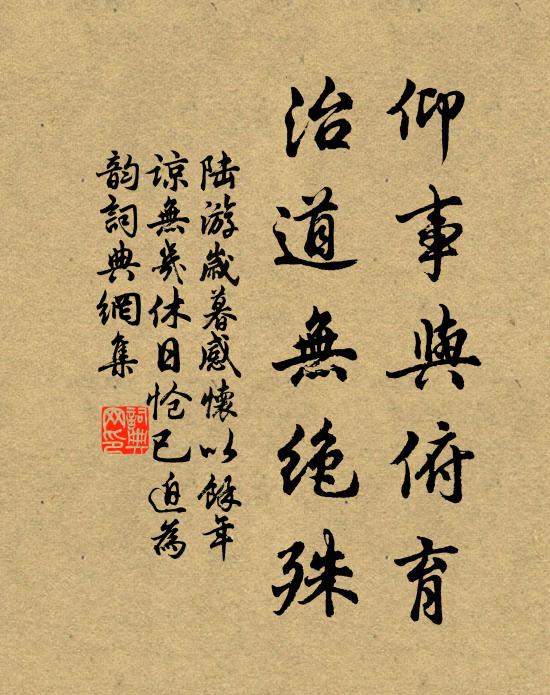 仰事與俯育
治道無絶殊
陸游歲暮感懷以餘年
諒無幾休日愴已迫為
韵詞典網集
詞典
网印